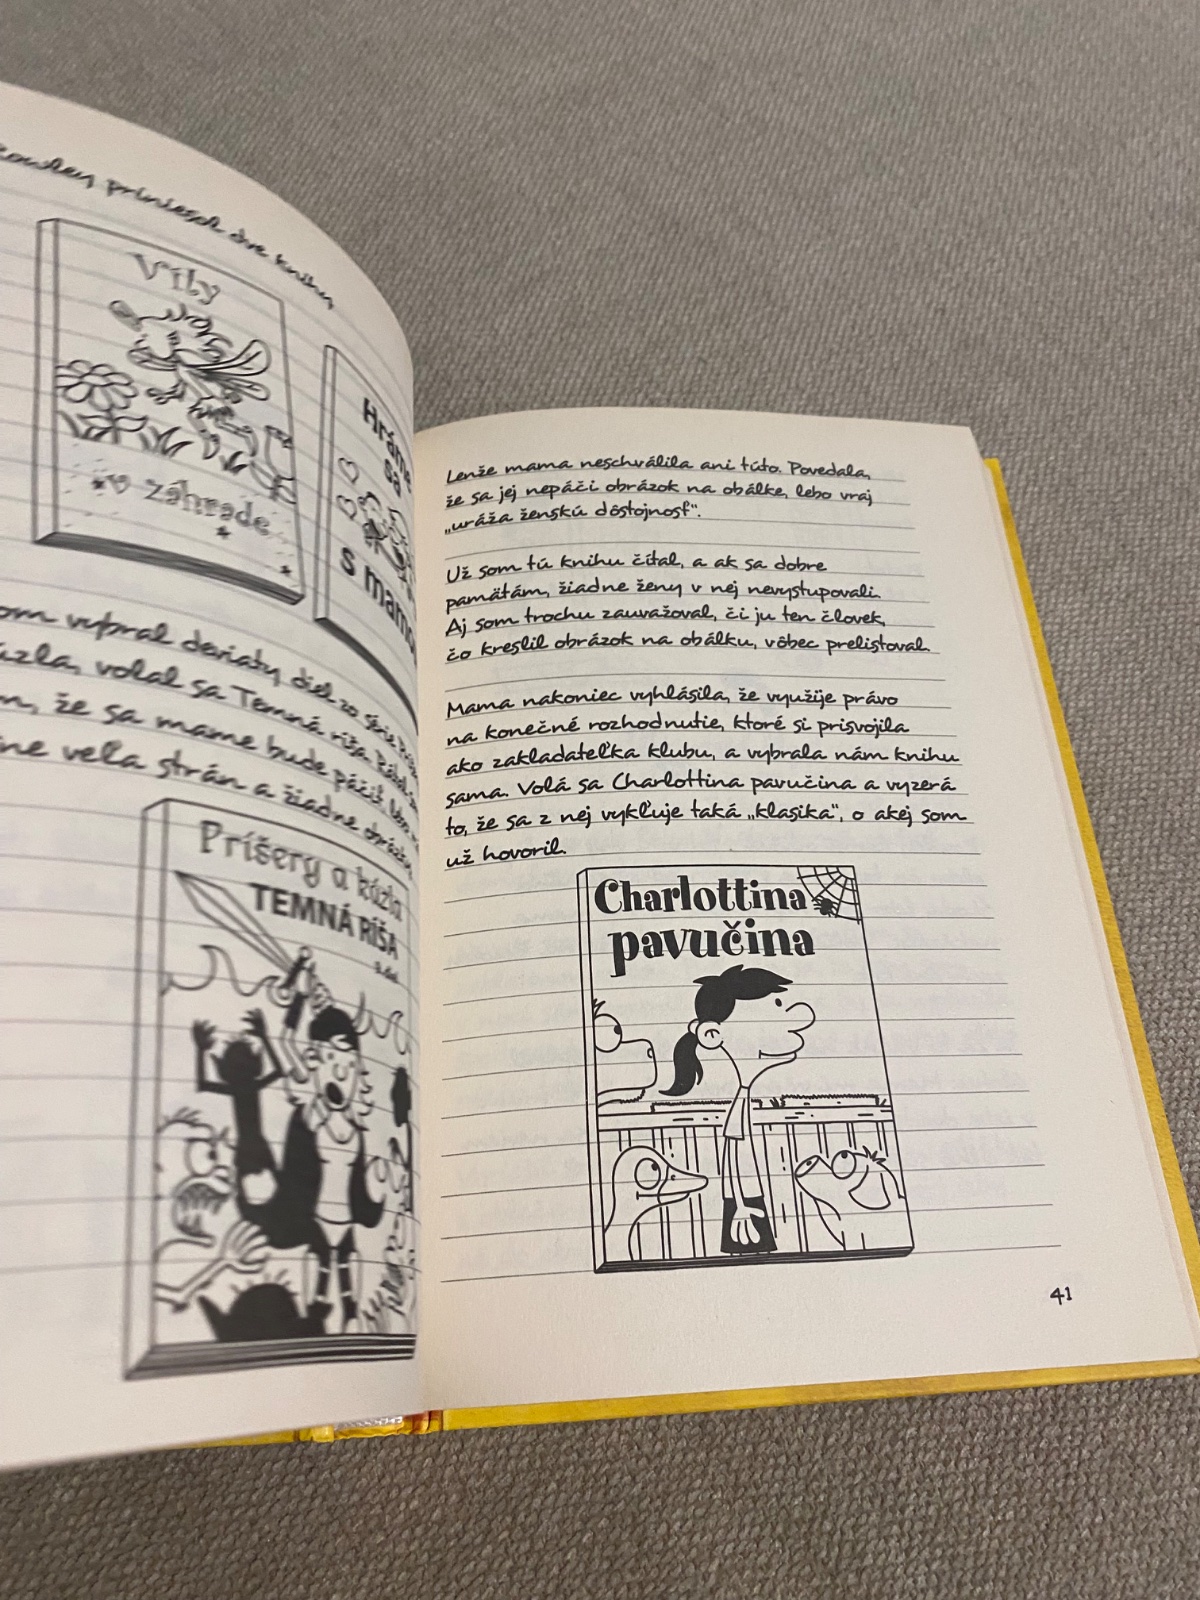 Rowley priniesol dve knihy
Víly
v záhrade
Hráme
sa
s mamo
som vybral deviaty diel zo série
kúzla, volal sa Temná ríša.
že sa mame bude páčiť, lebo
veľa strán a žiadne obrázky
Príšery a kúzla
TEMNÁ RÍŠA
9. diel
Lenže mama neschválila ani túto. Povedala,
že sa jej nepáči obrázok na obálke, lebo vraj
„uráža ženskú dôstojnosť“.
Už som tú knihu čítal, a ak sa dobre
pamätám, žiadne ženy v nej nevystupovali.
Aj som trochu zauvažoval, či ju ten človek,
čo kreslil obrázok na obálku, vôbec prelistoval.
Mama nakoniec vyhlásila, že využije právo
na konečné rozhodnutie, ktoré si prisvojila
ako zakladateľka klubu, a vybrala nám knihu
sama. Volá sa Charlottina pavučina a vyzerá
to, že sa z nej vykľuje taká „klasika“, o akej som
už hovoril.
Charlottina
pavučina
41